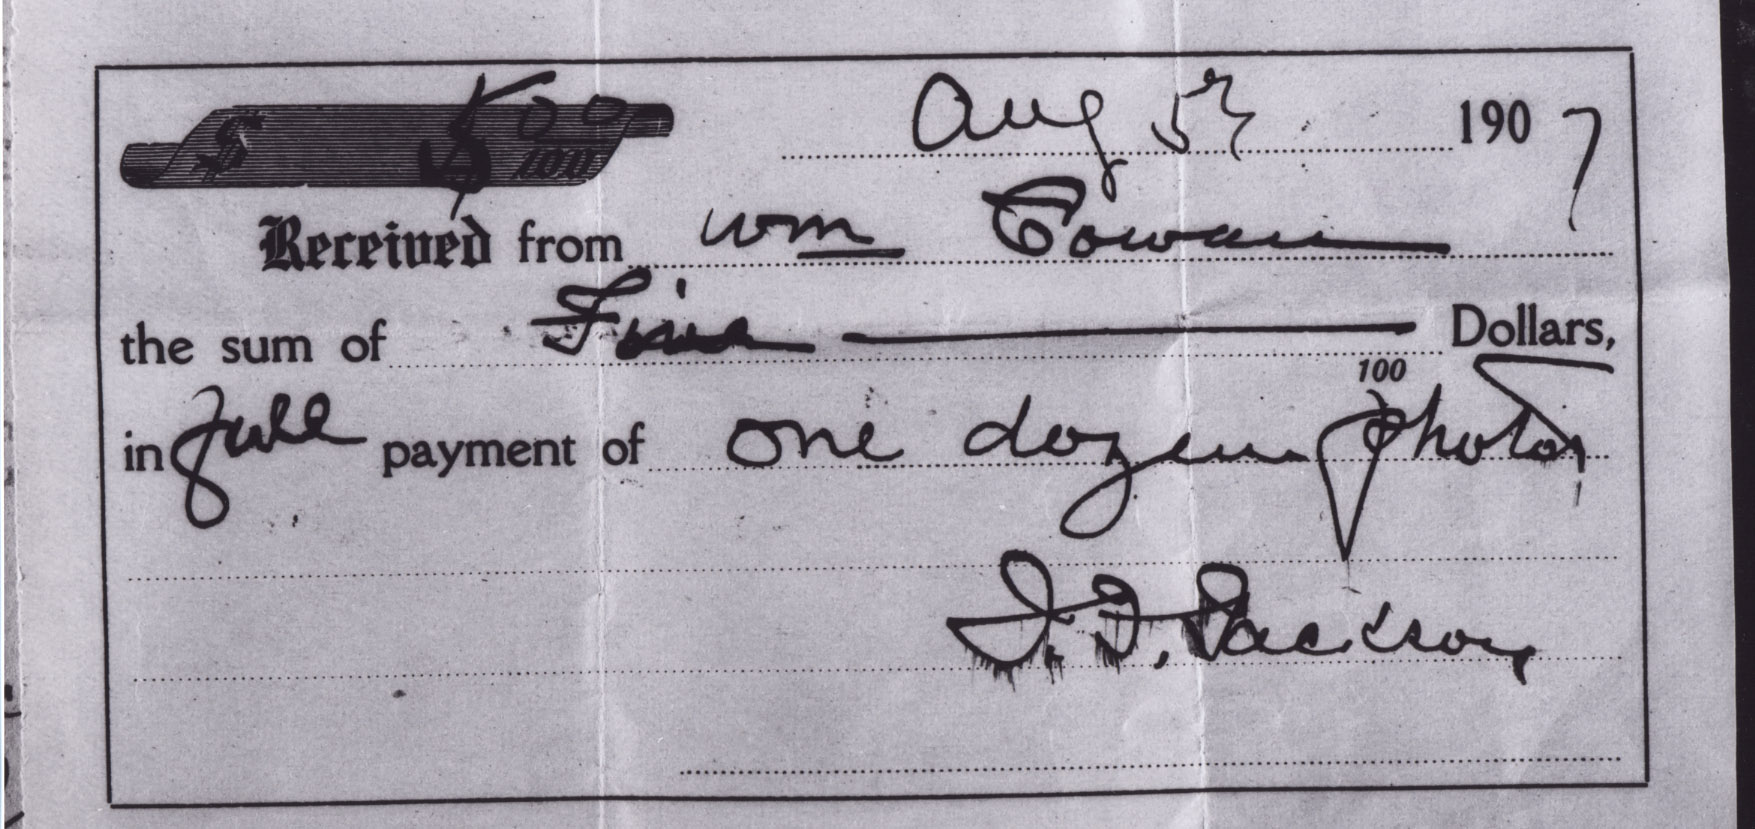 $ 5 00/100
Aug 5th 1907
Received from Wm Cowan
the sum of Five Dollars,
100
in full payment of one dozen photos
J. J. Jackson